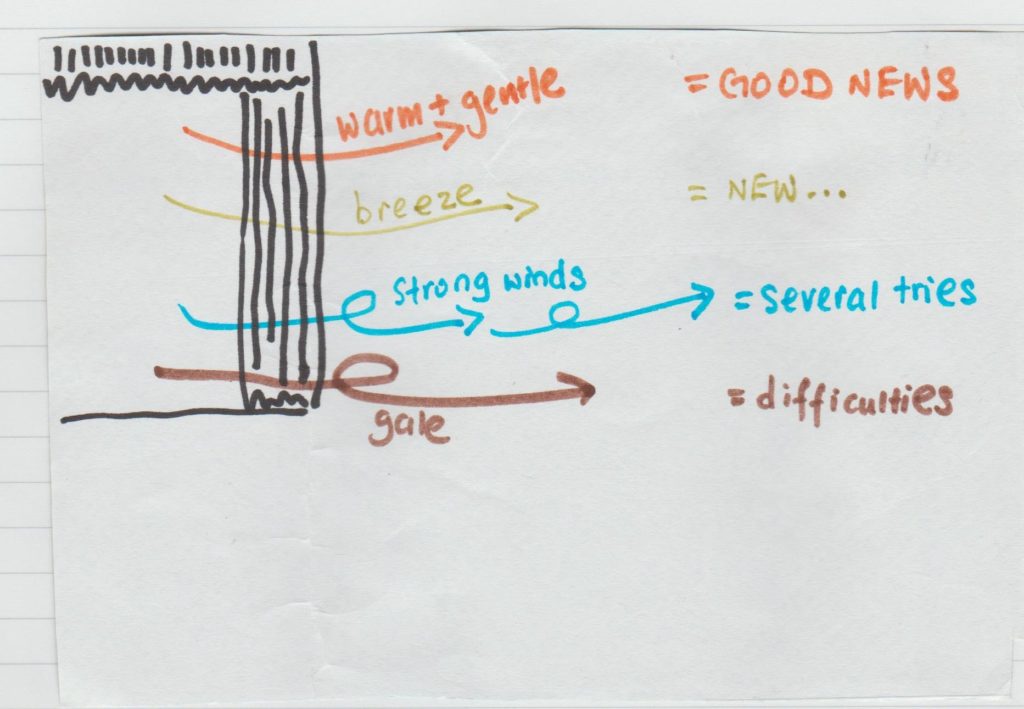 warm + gentle = GOOD NEWS
breeze = NEW...
strong winds = several tries
gale = difficulties